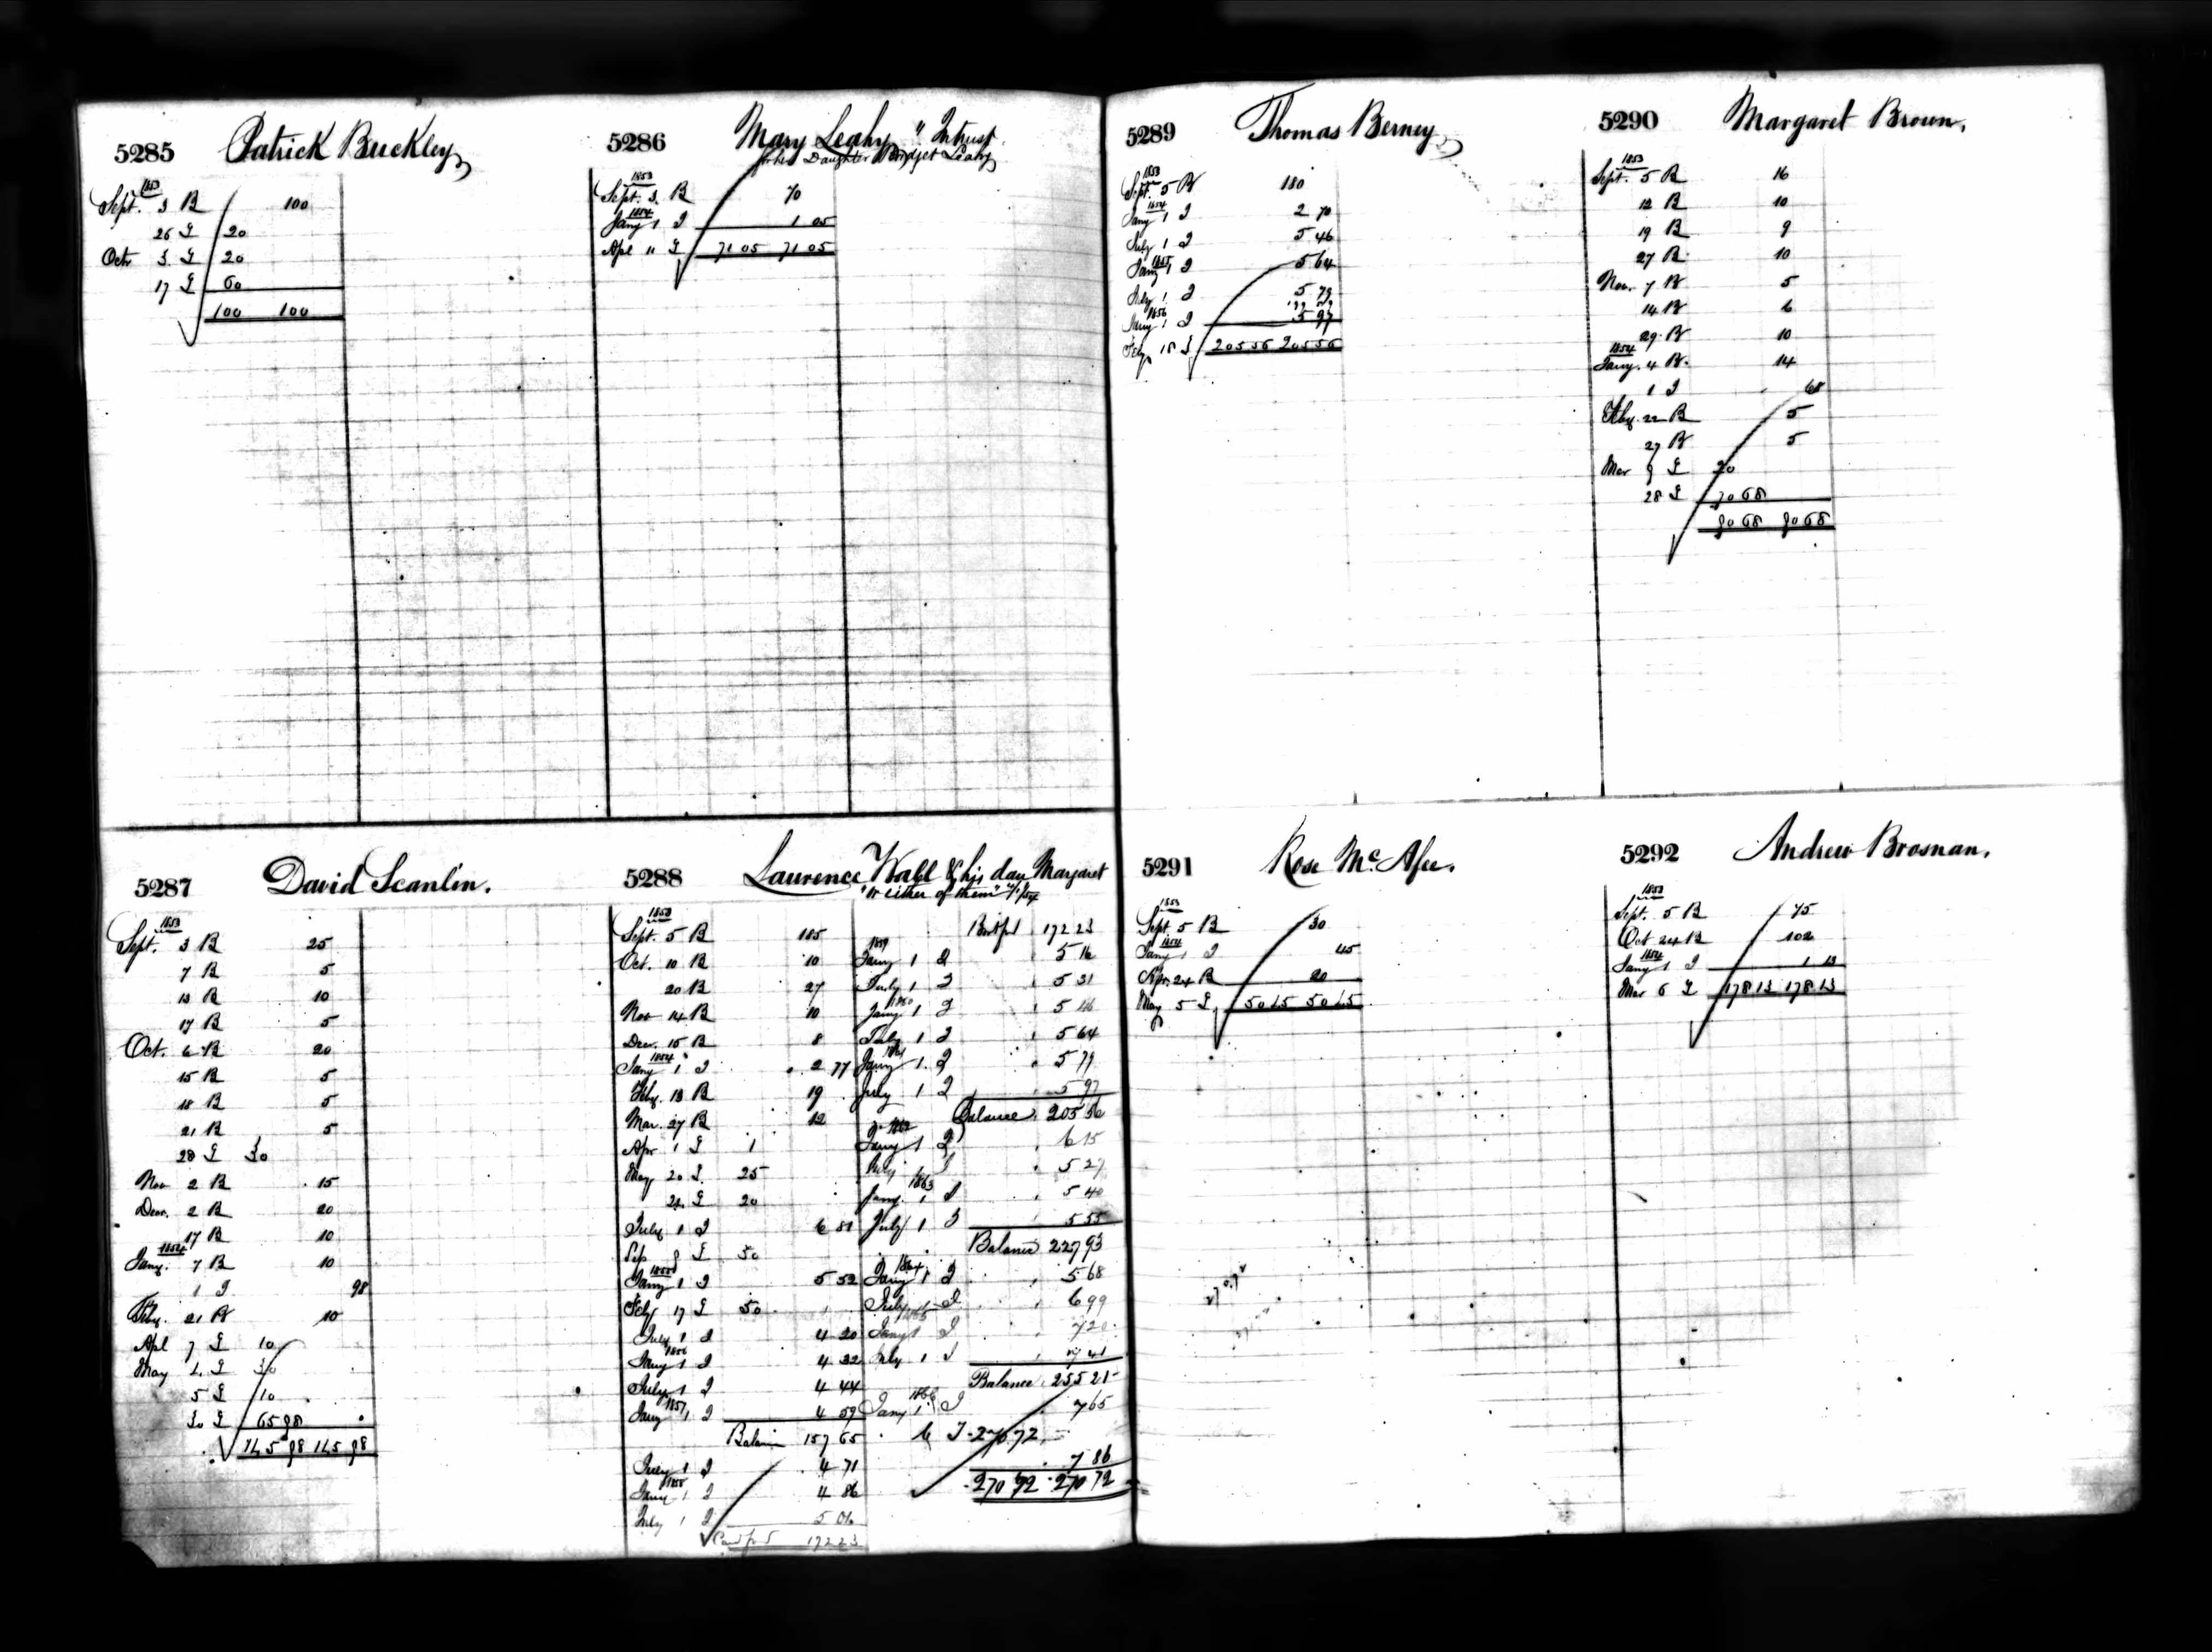 5285 Patrick Buckley
1853
Sept. 3 B 100
26 L 20
Octr 3 L 20
17 L 60
100 100
5286 Mary Leahy "Intrust
for her Daughter Bridget Leahy
1853
Sept. 3 B 70
1854
Jany 1 I 1 05
Apl 11 L 71 05 71 05
5287 David Scanlin.
1853
Sept. 3 B 25
7 B 5
13 B 10
17 B 5
Oct. 6 B 20
15 B 5
18 B 5
21 B 5
28 L 30
Nov 2 B 15
Decr. 2 B 20
17 B 10
1854
Jany. 7 B 10
1 I 98
Feby. 21 B 10
Apl 7 L 10
May 2 L 30
5 L 10
30 L 65 98
145 98 145 98
5288 Laurence Wall & his dau Margaret
"or either of them"
1853
Sept. 5 B 185
Oct. 10 B 10
20 B 27
Nov 14 B 10
Decr. 15 B 8
1854
Jany 1 I 2 77
Feby. 13 B 19
Mar. 27 B 12
Apr 1 L 1
May 20 L 25
24 L 20
July 1 I 6 81
Sep 8 L 50
1855
Jany 1 I 5 52
Feby 17 L 50
July 1 I 4 20
1856
Jany 1 I 4 32
July 1 I 4 44
1857
Jany 1 I 4 59
Balance 157 65
July 1 I 4 71
1858
Jany 1 I 4 86
July 1 I 5 01
Card ford 172 23
Brot ford 172 23
1859
Jany 1 I 5 16
July 1 I 5 31
1860
Jany 1 I 5 46
July 1 I 5 64
1861
Jany 1 I 5 79
July 1 I 5 97
Balance 205 56
1862
Jany 1 I 6 15
July I 5 27
1863
Jany 1 I 5 40
July 1 I 5 55
Balance 227 93
1864
Jany 1 I 5 68
July I 6 99
1865
Jany 1 I 7 20
July 1 I 7 41
Balance 255 21
1866
Jany 1 I 7 65
270 72
7 86
270 72 270 72
5289 Thomas Berney
1853
Sept. 5 B 180
1854
Jany 1 I 2 70
July 1 I 5 46
1855
Jany 1 I 5 64
July 1 I 5 79
1856
Jany 1 I 5 97
Feby 18 L 205 56 205 56
5290 Margaret Brown.
1853
Sept. 5 B 16
12 B 10
19 B 9
27 B 10
Nov. 7 B 5
14 B 6
29 B 10
1854
Jany. 4 B. 14
1 I 68
Feby. 22 B 5
27 B 5
Mar 9 L 20
28 L 70 68
90 68 90 68
5291 Rose McAfee.
1853
Sept. 5 B 30
1854
Jany 1 I 45
Apr. 24 B 20
May 5 L 50 45 50 45
5292 Andrew Brosnan.
1853
Sept. 5 B 75
Oct 24 B 102
1854
Jany 1 I 1 13
Mar 6 L 178 13 178 13